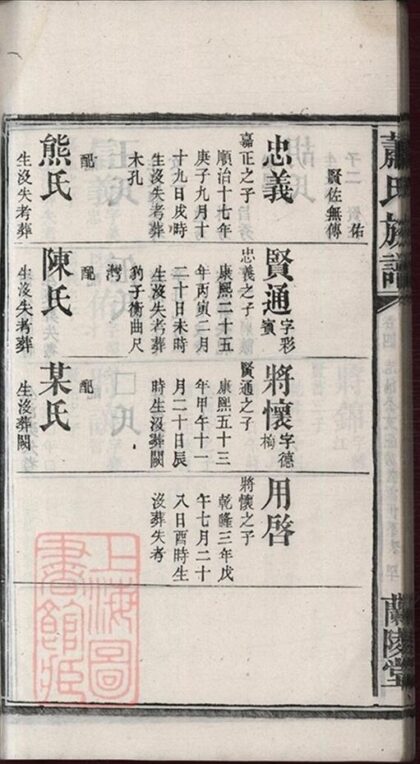 蕭氏族譜
卷四
蘭陵堂
子二
賢佑
賢佐無傳
忠義
嘉正之子
順治十七年
庚子九月十
十九日戌時
生沒失考葬
木孔
配
熊氏
生沒失考葬
賢通
字彩賓
忠義之子
康熙二十五
年丙寅二月
二十日未時
生沒失考葬
豹子衝曲尺
灣
配
陳氏
生沒失考葬
將懷
字德
賢通之子
康熙五十三
年甲午十一
月二十日辰
時生沒葬闕
配
某氏
生沒葬闕
用啓
將懷之子
乾隆三年戊
午七月二十
入日酉時生
沒葬失考
上海圖
書館藏